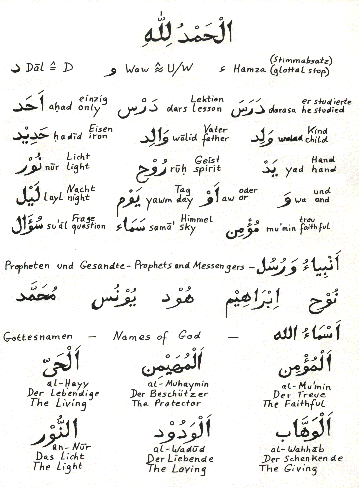 اَلْحَمْدُ لِلّٰهِ
د Dāl ≙ D و Waw ≈ U/W ء Hamza (Stimmabsatz) (glottal stop)
أَحَد aḥad einzig only دَرْس dars Lektion lesson دَرَسَ darasa er studierte he studied
حَدِيْد ḥadīd Eisen iron وَالِد wālid Vater father وَلَد walad Kind child
نُوْر nūr Licht light رُوْح rūḥ Geist spirit يَد yad Hand hand
لَيْل layl Nacht night يَوْم yawm Tag day أَوْ aw oder or وَ wa und and
سُؤَال su'āl Frage question سَمَاء samā' Himmel sky مُؤْمِن mu'min treu faithful
Propheten und Gesandte - Prophets and Messengers - أَنْبِيَاء وَرُسُل
نُوْح اِبْرَاهِيْم هُوْد يُوْنُس مُحَمَّد
Gottesnamen - Names of God - أَسْمَاءُ الله
اَلْحَيّ اَلْمُهَيْمِن اَلْمُؤْمِن
al-Ḥayy al-Muhaymin al-Mu'min
Der Lebendige Der Beschützer Der Treue
The Living The Protector The Faithful
اَلنُّوْر اَلْوَدُوْد اَلْوَهَّاب
an-Nūr al-Wadūd al-Wahhāb
Das Licht Der Liebende Der Schenkende
The Light The Loving The Giving